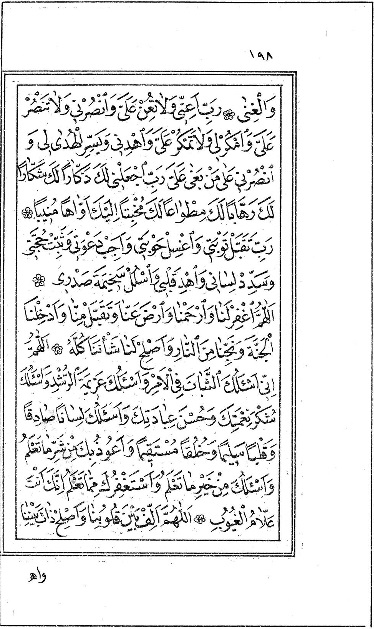 ١٩٨
وَالْغِنٰى ❁ رَبِّ اَعِنِّي وَلَا تُعِنْ عَلَيَّ وَانْصُرْنِي وَلَا تَنْصُرْ
عَلَيَّ وَامْكُرْ لِي وَلَا تَمْكُرْ عَلَيَّ وَاهْدِنِي وَيَسِّرِ الْهُدٰى لِي وَ
انْصُرْنِي عَلٰى مَنْ بَغٰى عَلَيَّ رَبِّ اجْعَلْنِي لَكَ ذَكَّارًا لَكَ شَكَّارًا
لَكَ رَهَّابًا لَكَ مِطْوَاعًا لَكَ مُخْبِتًا اِلَيْكَ اَوَّاهًا مُنِيبًا ❁
رَبِّ تَقَبَّلْ تَوْبَتِي وَاغْسِلْ حَوْبَتِي وَاَجِبْ دَعْوَتِي وَثَبِّتْ حُجَّتِي
وَسَدِّدْ لِسَانِي وَاهْدِ قَلْبِي وَاسْلُلْ سَخِيمَةَ صَدْرِي ❁
اَللّٰهُمَّ اغْفِرْ لَنَا وَارْحَمْنَا وَارْضَ عَنَّا وَتَقَبَّلْ مِنَّا وَاَدْخِلْنَا
الْجَنَّةَ وَنَجِّنَا مِنَ النَّارِ وَاَصْلِحْ لَنَا شَأْنَنَا كُلَّهُ ❁ اَللّٰهُمَّ
اِنِّي اَسْئَلُكَ الثَّبَاتَ فِي الْاَمْرِ وَاَسْئَلُكَ عَزِيمَةَ الرُّشْدِ وَاَسْئَلُكَ
شُكْرَ نِعْمَتِكَ وَحُسْنَ عِبَادَتِكَ وَاَسْئَلُكَ لِسَانًا صَادِقًا
وَقَلْبًا سَلِيمًا وَخُلُقًا مُسْتَقِيمًا وَاَعُوذُ بِكَ مِنْ شَرِّ مَا تَعْلَمُ
وَاَسْئَلُكَ مِنْ خَيْرِ مَا تَعْلَمُ وَاَسْتَغْفِرُكَ مِمَّا تَعْلَمُ اِنَّكَ اَنْتَ
عَلَّامُ الْغُيُوبِ ❁ اَللّٰهُمَّ اَلِّفْ بَيْنَ قُلُوبِنَا وَاَصْلِحْ ذَاتَ بَيْنِنَا
واهد